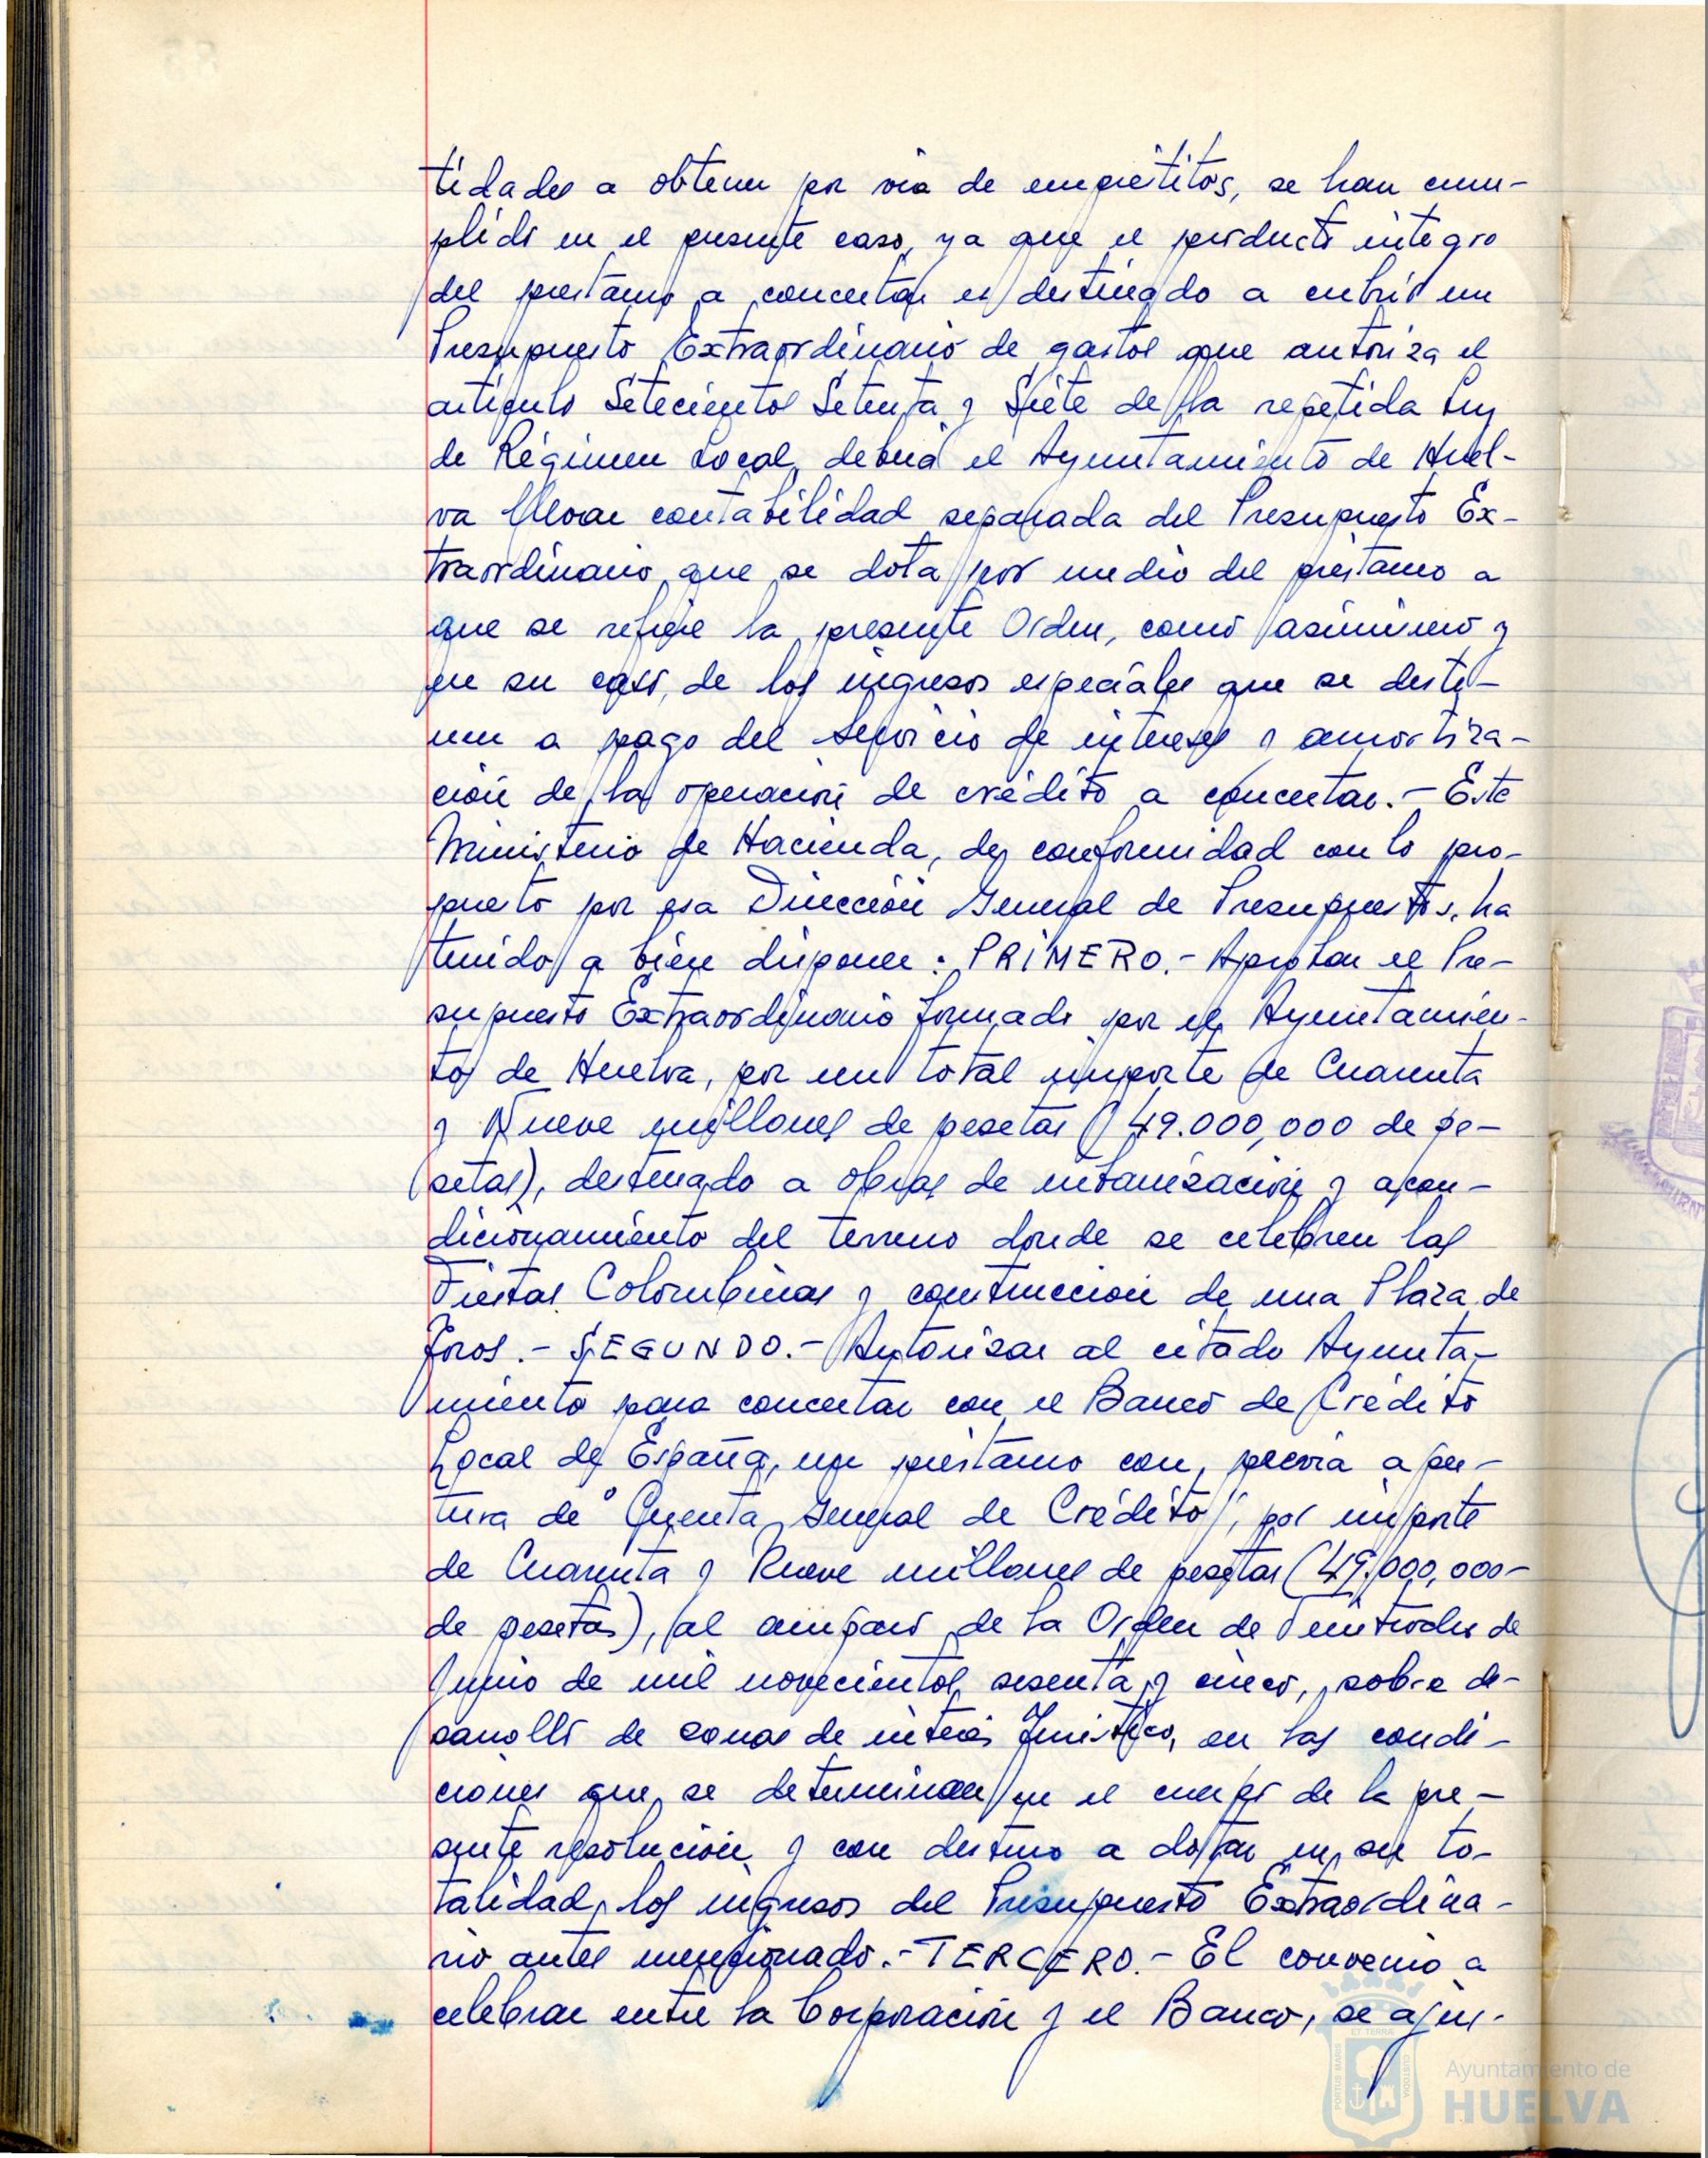 tidades a obtener por via de empréstitos, se han cum-
plido en el presente caso, ya que el producto integro
del prestamo a concertar es destinado a cubrir un
Presupuesto Extraordinario de gastos que autoriza el
articulo Setecientos Setenta y Siete de la repetida Ley
de Régimen Local, deberá el Ayuntamiento de Huel-
va llevar contabilidad separada del Presupuesto Ex-
traordinario que se dota por medio del préstamo a
que se refiere la presente Orden, como asimismo y
en su caso, de los ingresos especiales que se desti-
nen a pago del servicio de intereses y amortiza-
ción de la operación de crédito a concertar.- Este
Ministerio de Hacienda, de conformidad con lo pro-
puesto por esa Dirección General de Presupuestos, ha
tenido a bien disponer: PRIMERO.- Aprobar el Pre-
supuesto Extraordinario formado por el Ayuntamien-
to de Huelva, por un total importe de Cuarenta
y Nueve millones de pesetas (49.000,000 de pe-
setas), destinado a obras de urbanización y acon-
dicionamiento del terreno donde se celebren las
Fiestas Colombinas y construcción de una Plaza de
Toros.- SEGUNDO.- Autorizar al citado Ayunta-
miento para concertar con el Banco de Crédito
Local de España, un préstamo con, previa aper-
tura de "Cuenta General de Crédito", por importe
de Cuarenta y Nueve millones de pesetas (49.000,000-
de pesetas), al amparo de la Orden de Veintiocho de
Junio de mil novecientos sesenta y cinco, sobre de-
sarrollo de zonas de interés Turístico, en las condi-
ciones que se determinan en el cuerpo de la pre-
sente resolución y con destino a dotar en su to-
talidad, los ingresos del Presupuesto Extraordina-
rio antes mencionado.- TERCERO.- El convenio a
celebrar entre la Corporación y el Banco, se ajus-
Ayuntamiento de
HUELVA